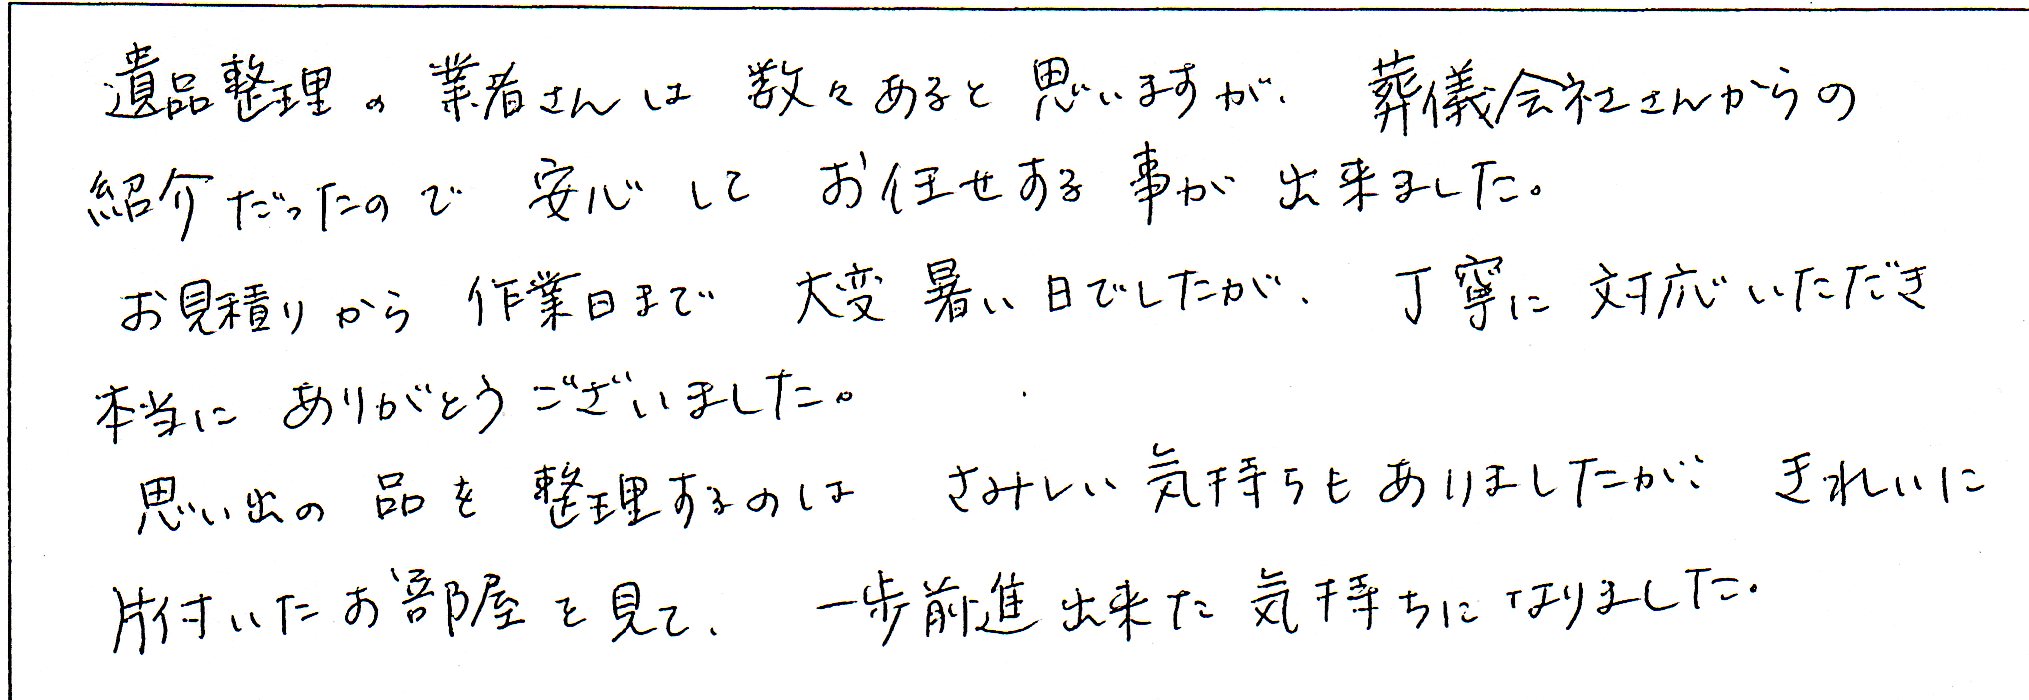 遺品整理の業者さんは数々あると思いますが、葬儀会社さんからの
紹介だったので安心してお任せする事が出来ました。
お見積りから作業日まで大変暑い日でしたが、丁寧に対応いただき
本当にありがとうございました。
思い出の品を整理するのはさみしい気持ちもありましたが、きれいに
片付いたお部屋を見て、一歩前進出来た気持ちになりました。